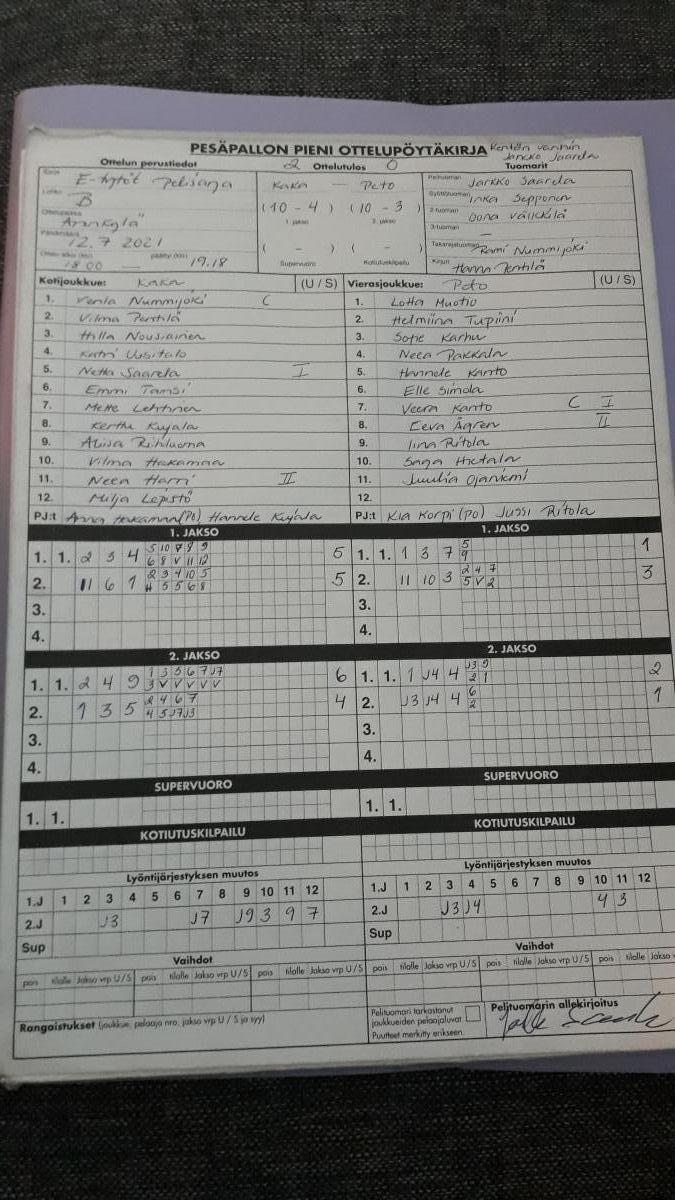 PESÄPALLON PIENI OTTELUPÖYTÄKIRJA Kentän vanhin
Jarkko Saarela
Ottelun perustiedot 2 Ottelutulos 0 Tuomarit
E-tytöt pelisarja
B
12.7 2021
18.00 — 19.18
KaKa — PeTo
(10 - 4) (10 - 3)
1. jakso 2. jakso
( - ) ( - )
Supervuoro Kotiutuskilpailu
Pelituomari Jarkko Saarela
Syöttötuomari Inka Sepponen
2-tuomari Oona Välkkilä
3-tuomari —
Takarajatuomari Rami Nummijoki
Kirjuri Hanna Pentilä
Kotijoukkue: KaKa (U / S)
1. Venla Nummijoki C
2. Vilma Penttilä
3. Hilla Nousiainen
4. Katri Uusitalo
5. Netta Saarela I
6. Emmi Tamsi
7. Mette Lehtinen
8. Kerttu Kujala
9. Aliisa Rihluoma
10. Vilma Hakamaa
11. Neea Harri II
12. Milja Lepistö
PJ:t Anna Hakamaa (PO) Hannele Kujala
Vierasjoukkue: PeTo (U / S)
1. Lotta Muotio
2. Helmiina Tupiini
3. Sofie Karhu
4. Neea Pakkala
5. Hannele Kanto
6. Elle Simola
7. Veera Kanto C I
8. Eeva Ågren II
9. Iina Ritola
10. Saga Hietala
11. Juulia Ojaniemi
12.
PJ:t Kia Korpi (PO) Jussi Ritola
1. JAKSO
5 10 7 8 9
1. 1. 2 3 4 6 8 V 11 12 5
2 3 4 10 5
2. 11 6 1 4 5 5 6 8 5
3.
4.
1. JAKSO
5
1. 1. 1 3 7 9 1
2 4 7
2. 11 10 3 5 V 2 3
3.
4.
2. JAKSO
1 3 5 6 7 J7
1. 1. 2 4 9 3 V V V V V 6
2 4 6 7
2. 1 3 5 4 5 J7 J3 4
3.
4.
2. JAKSO
J3 9
1. 1. 1 J4 4 2 1 2
6
2. J3 J4 4 2 1
3.
4.
SUPERVUORO
1. 1.
SUPERVUORO
1. 1.
KOTIUTUSKILPAILU
KOTIUTUSKILPAILU
Lyöntijärjestyksen muutos
1.J 1 2 3 4 5 6 7 8 9 10 11 12
2.J J3 J7 J9 3 9 7
Sup
Lyöntijärjestyksen muutos
1.J 1 2 3 4 5 6 7 8 9 10 11 12
2.J J3 J4 4 3
Sup
Vaihdot
pois tilalle Jakso vrp U / S pois tilalle Jakso vrp U / S pois tilalle Jakso vrp U / S
Vaihdot
pois tilalle Jakso vrp U / S pois tilalle Jakso vrp U / S pois tilalle Jakso
Rangaistukset (joukkue, pelaaja nro, jakso vrp U / S ja syy)
Pelituomari tarkastanut
joukkueiden pelaajaluvat
Puutteet merkitty erikseen.
Pelituomarin allekirjoitus